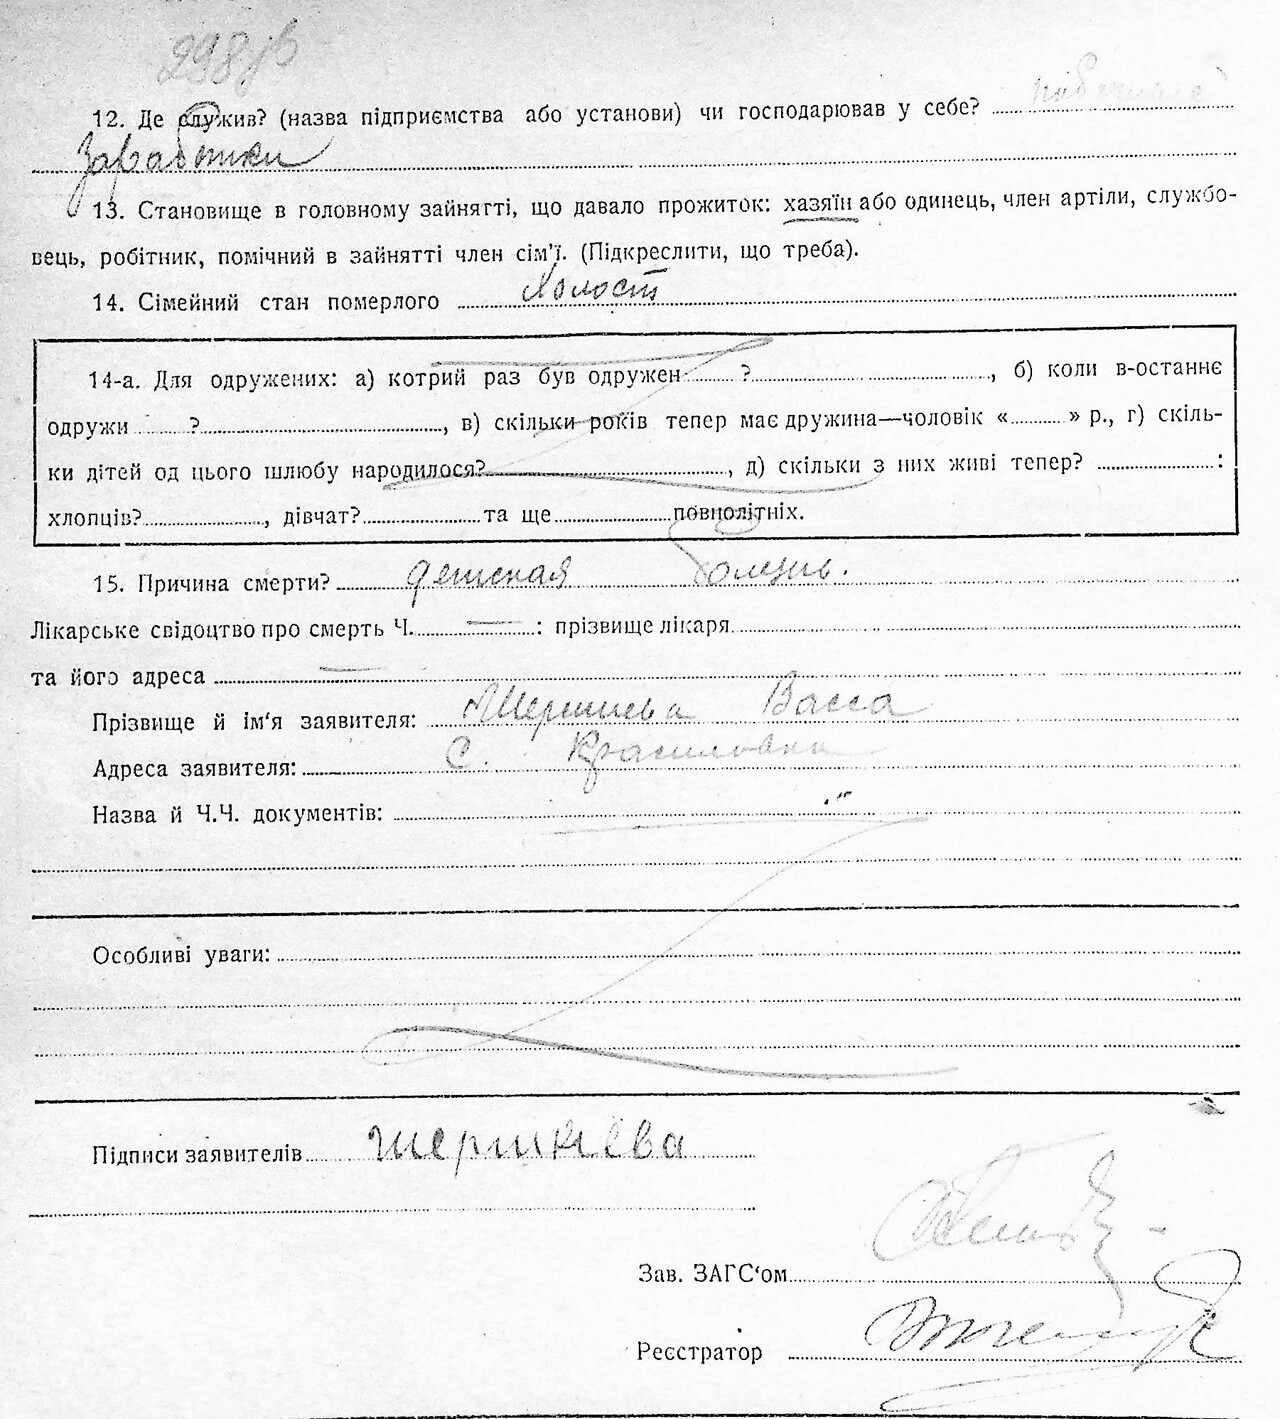 298
12. Де служив? (назва підприємства або установи) чи господарював у себе?
Заработки
13. Становище в головному зайнятті, що давало прожиток: хазяїн або одинець, член артіли, службо-
вець, робітник, помічний в зайнятті член сім'ї. (Підкреслити, що треба).
14. Сімейний стан померлого Холост
14-а. Для одружених: а) котрий раз був одружен ?, б) коли в-останнє
одружи ?, в) скільки років тепер має дружина—чоловік « » р., г) скіль-
ки дітей од цього шлюбу народилося?, д) скільки з них живі тепер? :
хлопців?, дівчат? та ще повнолітніх.
15. Причина смерти? детская болезнь.
Лікарське свідоцтво про смерть Ч. — : прізвище лікаря
та його адреса —
Прізвище й ім'я заявителя: Васса
Адреса заявителя: С. Красиловка
Назва й Ч.Ч. документів:
Особливі уваги:
Підписи заявителів
Зав. ЗАГС'ом
Реєстратор